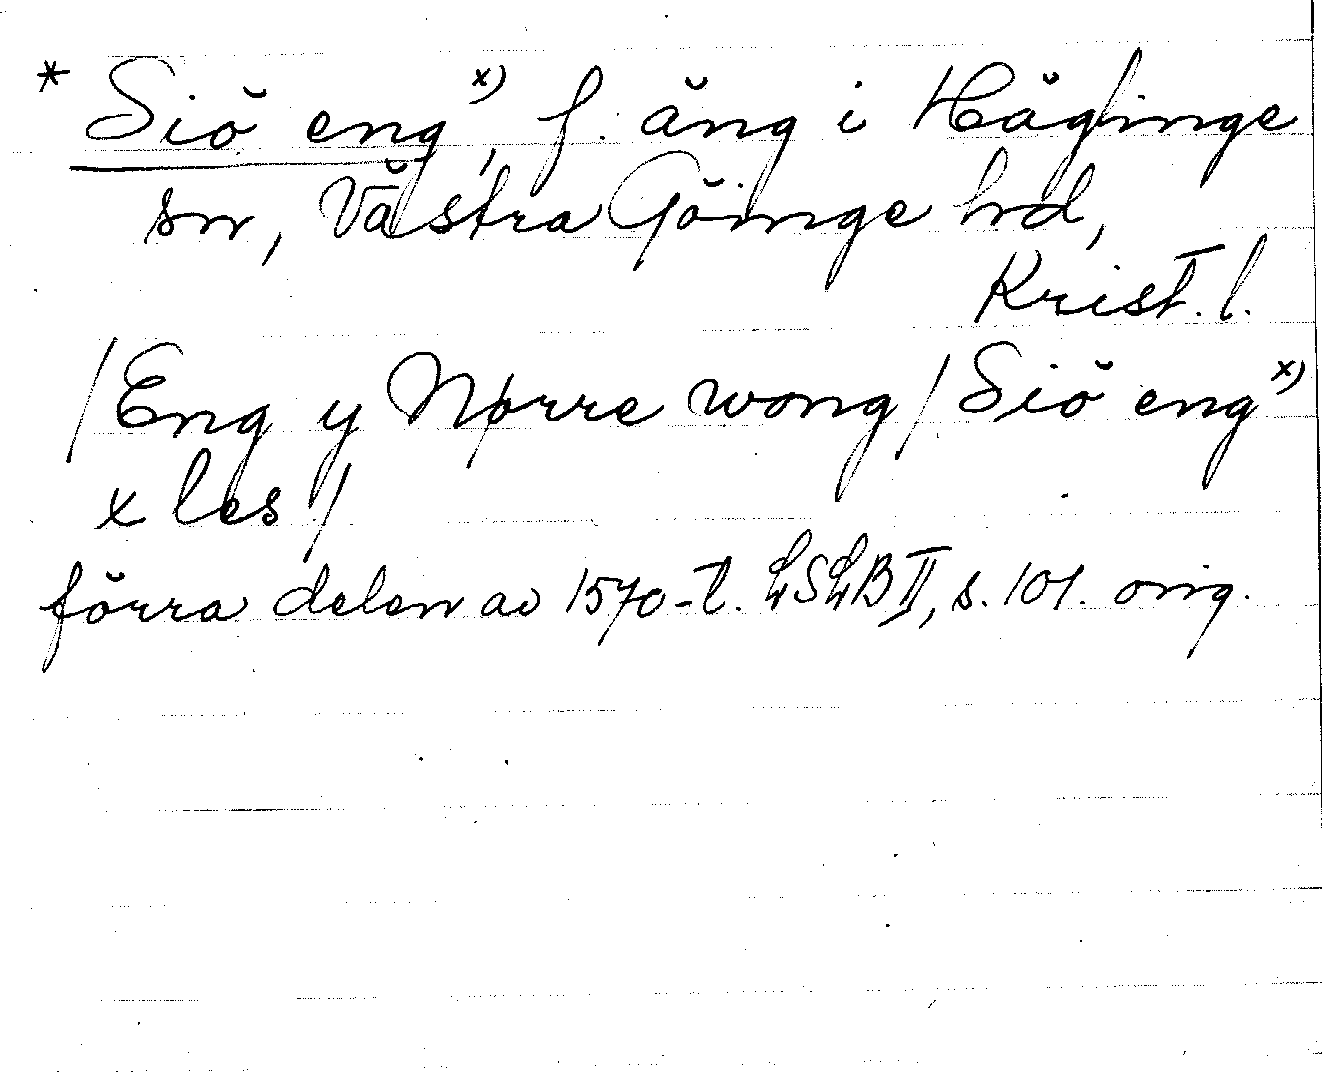 * Siö eng x), f. äng i Häglinge
sn, Västra Göinge hd,
Krist. l.
/Eng y Nørre wong/ Siö eng x)
x les/
förra delen av 1570-t. LSLB II, s. 101. orig.